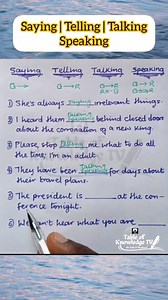 Saying | Telling | Talking
Speaking
Saying Telling Talking Speaking
1) She's always saying irrelevant things.
2) I heard them talking behind closed door
about the coronation of a new king.
3) Please, stop telling me what to do all
the time, I'm an adult.
4) They have been talking speaking for days about
their travel plans.
5) The president is ______ at the con-
ference tonight.
6) We can't hear what you are ______
Table of
Knowledge TV